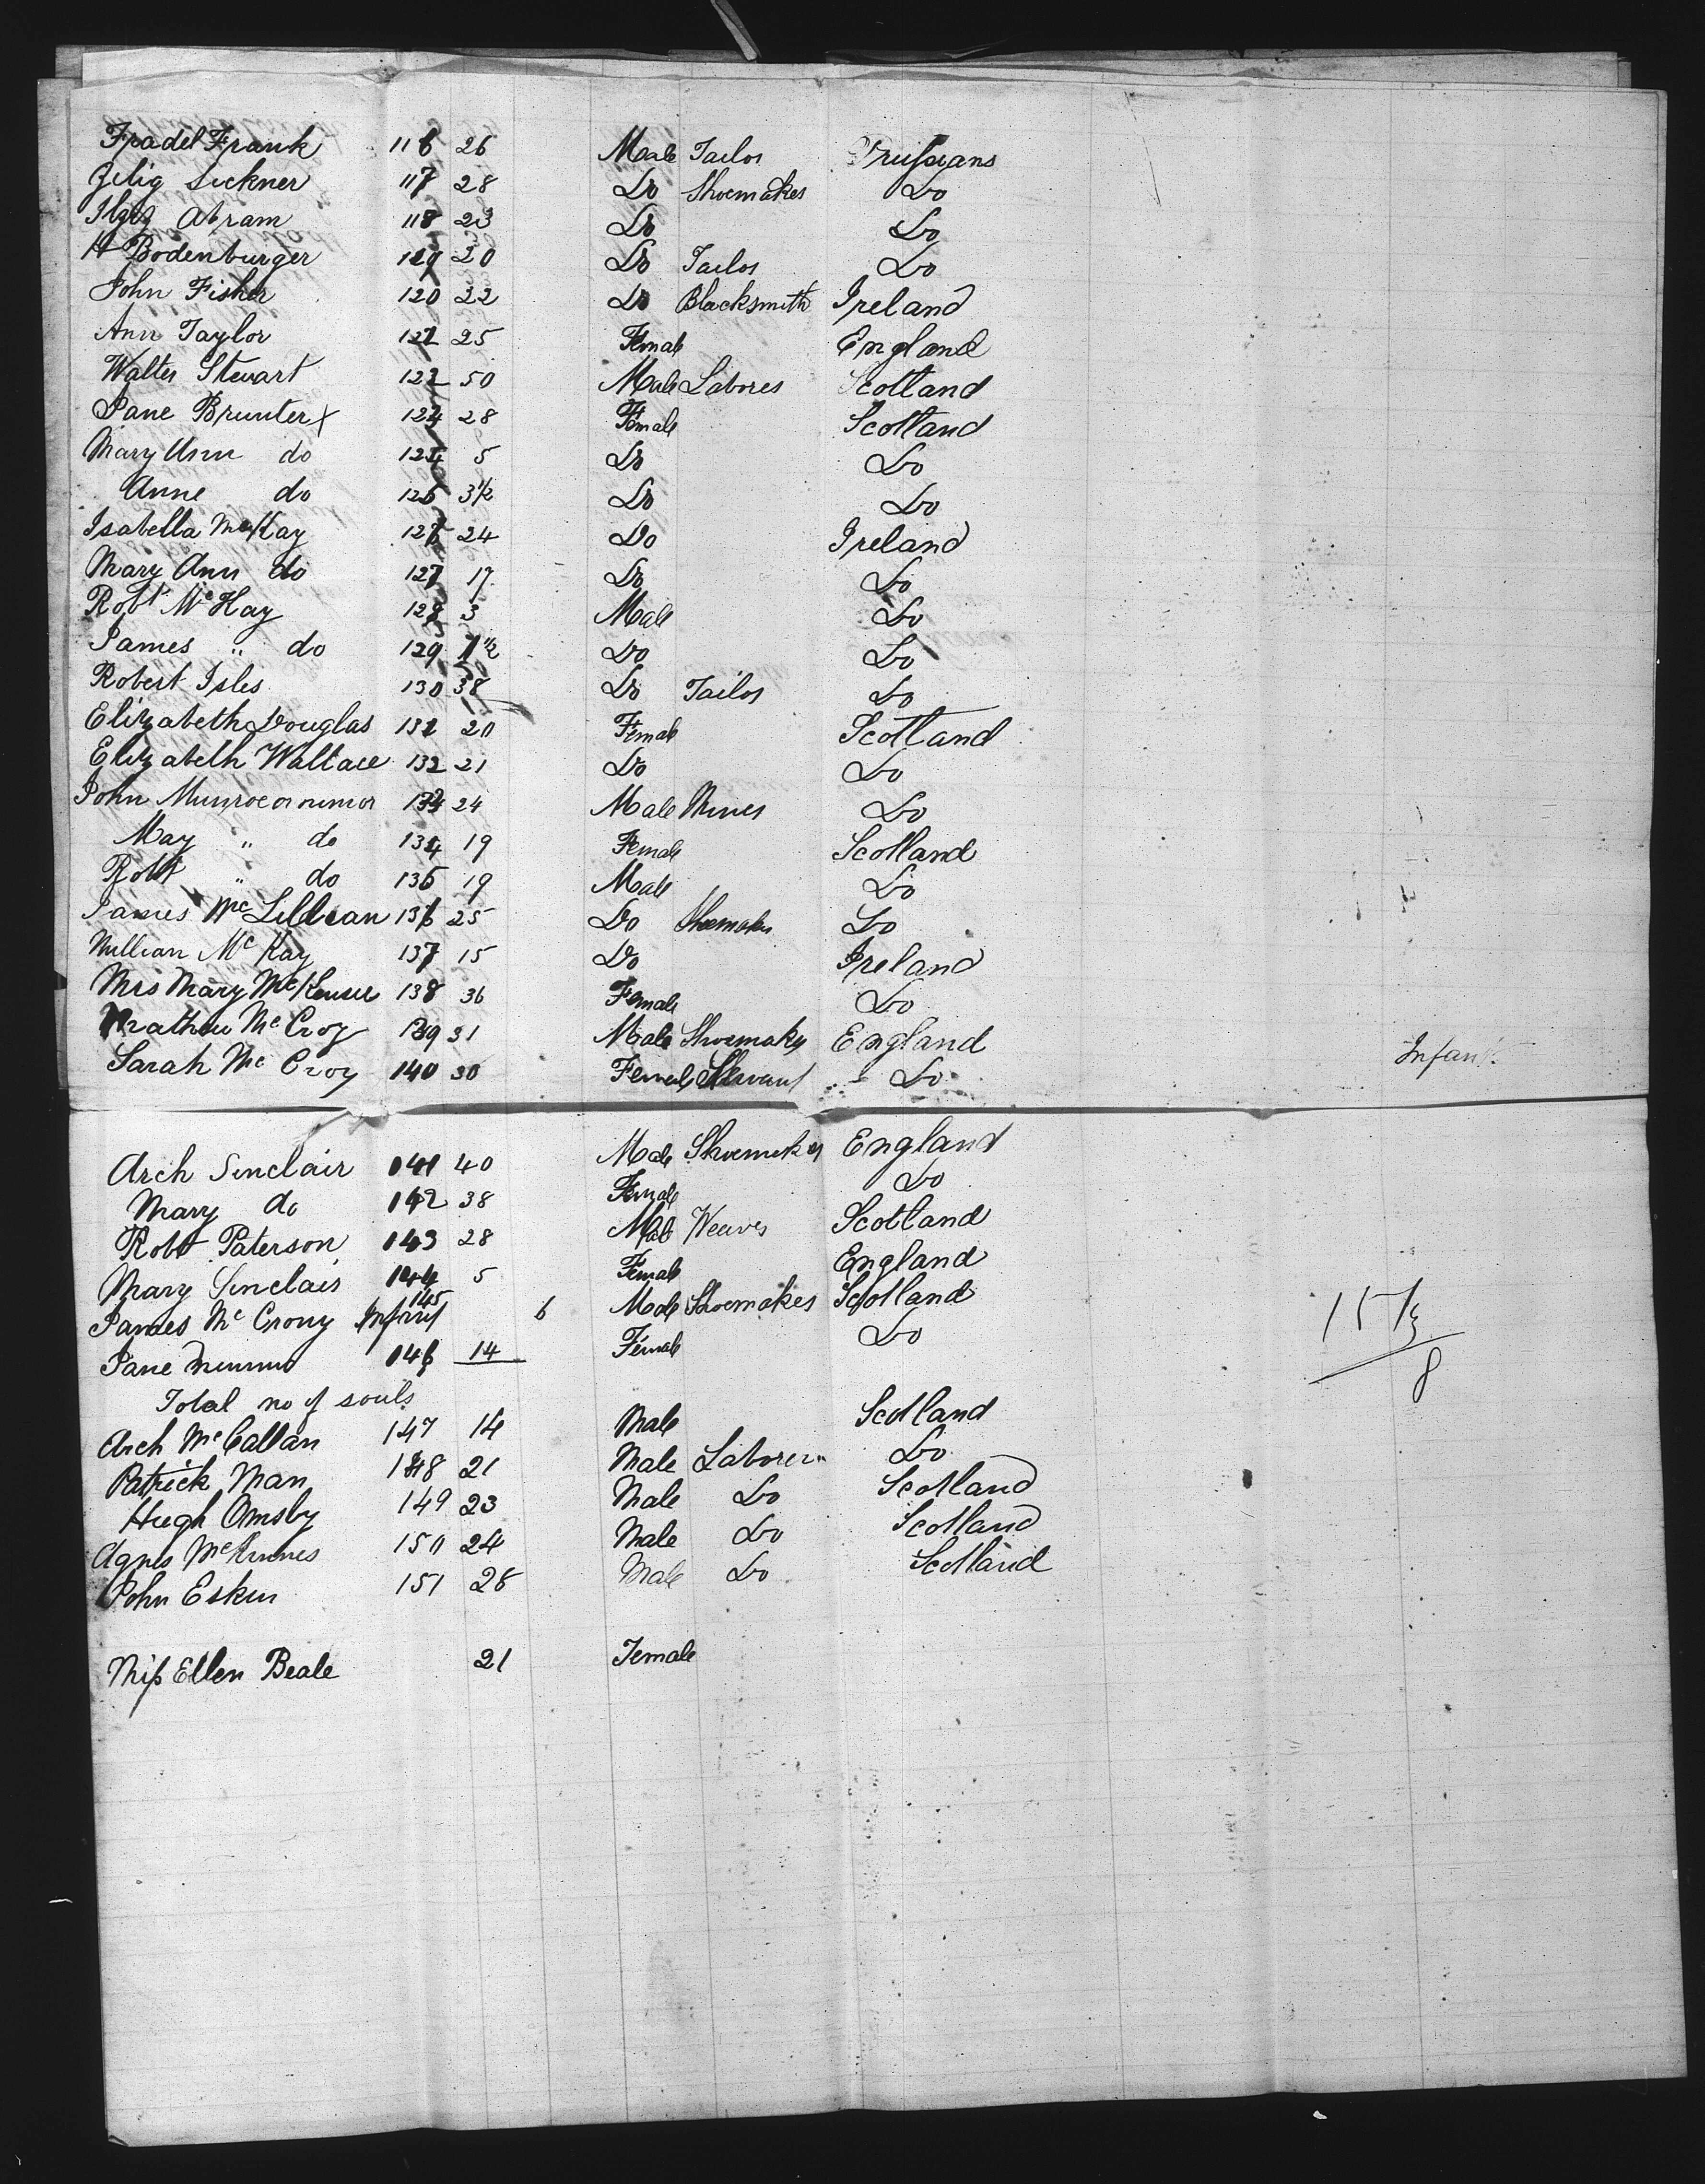 Fradel Frank 116 26 Male Tailor Prussians
Zelig Lickner 117 28 Do Shoemaker Do
Abram 118 23 Do Do
H Bodenburger 119 20 Do Tailor Do
John Fisher 120 22 Do Blacksmith Ireland
Ann Taylor 121 25 Female England
Walter Stewart 122 50 Male Laborer Scotland
Jane Brunter x 123 28 Female Scotland
Mary Ann do 124 5 Do Do
Anne do 125 3½ Do Do
Isabella McKay 126 24 Do Ireland
Mary Ann do 127 17 Do Do
Robt McKay 128 3 Male Do
James " do 129 1½ Do Do
Robert Isles 130 38 Do Tailor Do
Elizabeth Douglas 131 20 Female Scotland
Elizabeth Wallace 132 21 Do Do
John Munroe or 133 24 Male Miner Do
May " do 134 19 Female Scotland
Robt " do 135 19 Male Do
James McLillean 136 25 Do Shoemaker Do
William McKay 137 15 Do Ireland
Mrs Mary McKensie 138 36 Female Do
Mathew McCroy 139 31 Male Shoemaker England
Sarah McCroy 140 30 Female Servant Do Infant
Arch Sinclair 141 40 Male Shoemaker England
Mary do 142 38 Female Do
Robt Paterson 143 28 Male Weaver Scotland
Mary Sinclair 144 5 Female England
James McCrony Infant 145 6 Male Shoemaker Scotland
Jane 146 14 Female Do
8
Total no of souls
Arch McCallan 147 14 Male Scotland
Patrick Man 148 21 Male Laborer Do
Hugh Omsby 149 23 Male Do Scotland
Agnes McInnes 150 24 Male Do Scotland
John Eskin 151 28 Male Do Scotland
Miss Ellen Beale 21 Female